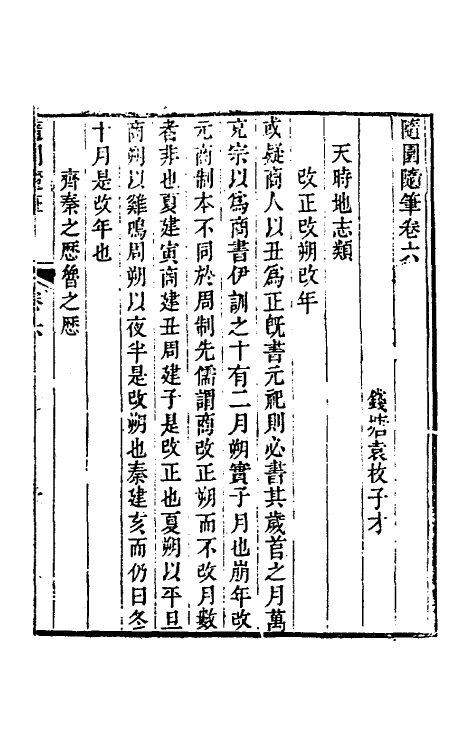 隨園隨筆卷六
錢塘袁枚子才
天時地志類
改正改朔改年
或疑商人以丑爲正旣書元祀則必書其歲首之月萬
充宗以爲商書伊訓之十有二月朔實子月也崩年改
元商制本不同於周制先儒謂商改正朔而不改月數
者非也夏建寅商建丑周建子是改正也夏朔以平旦
商朔以雞鳴周朔以夜半是改朔也秦建亥而仍曰冬
十月是改年也
齊秦之厯魯之厯
隨園隨筆
卷六